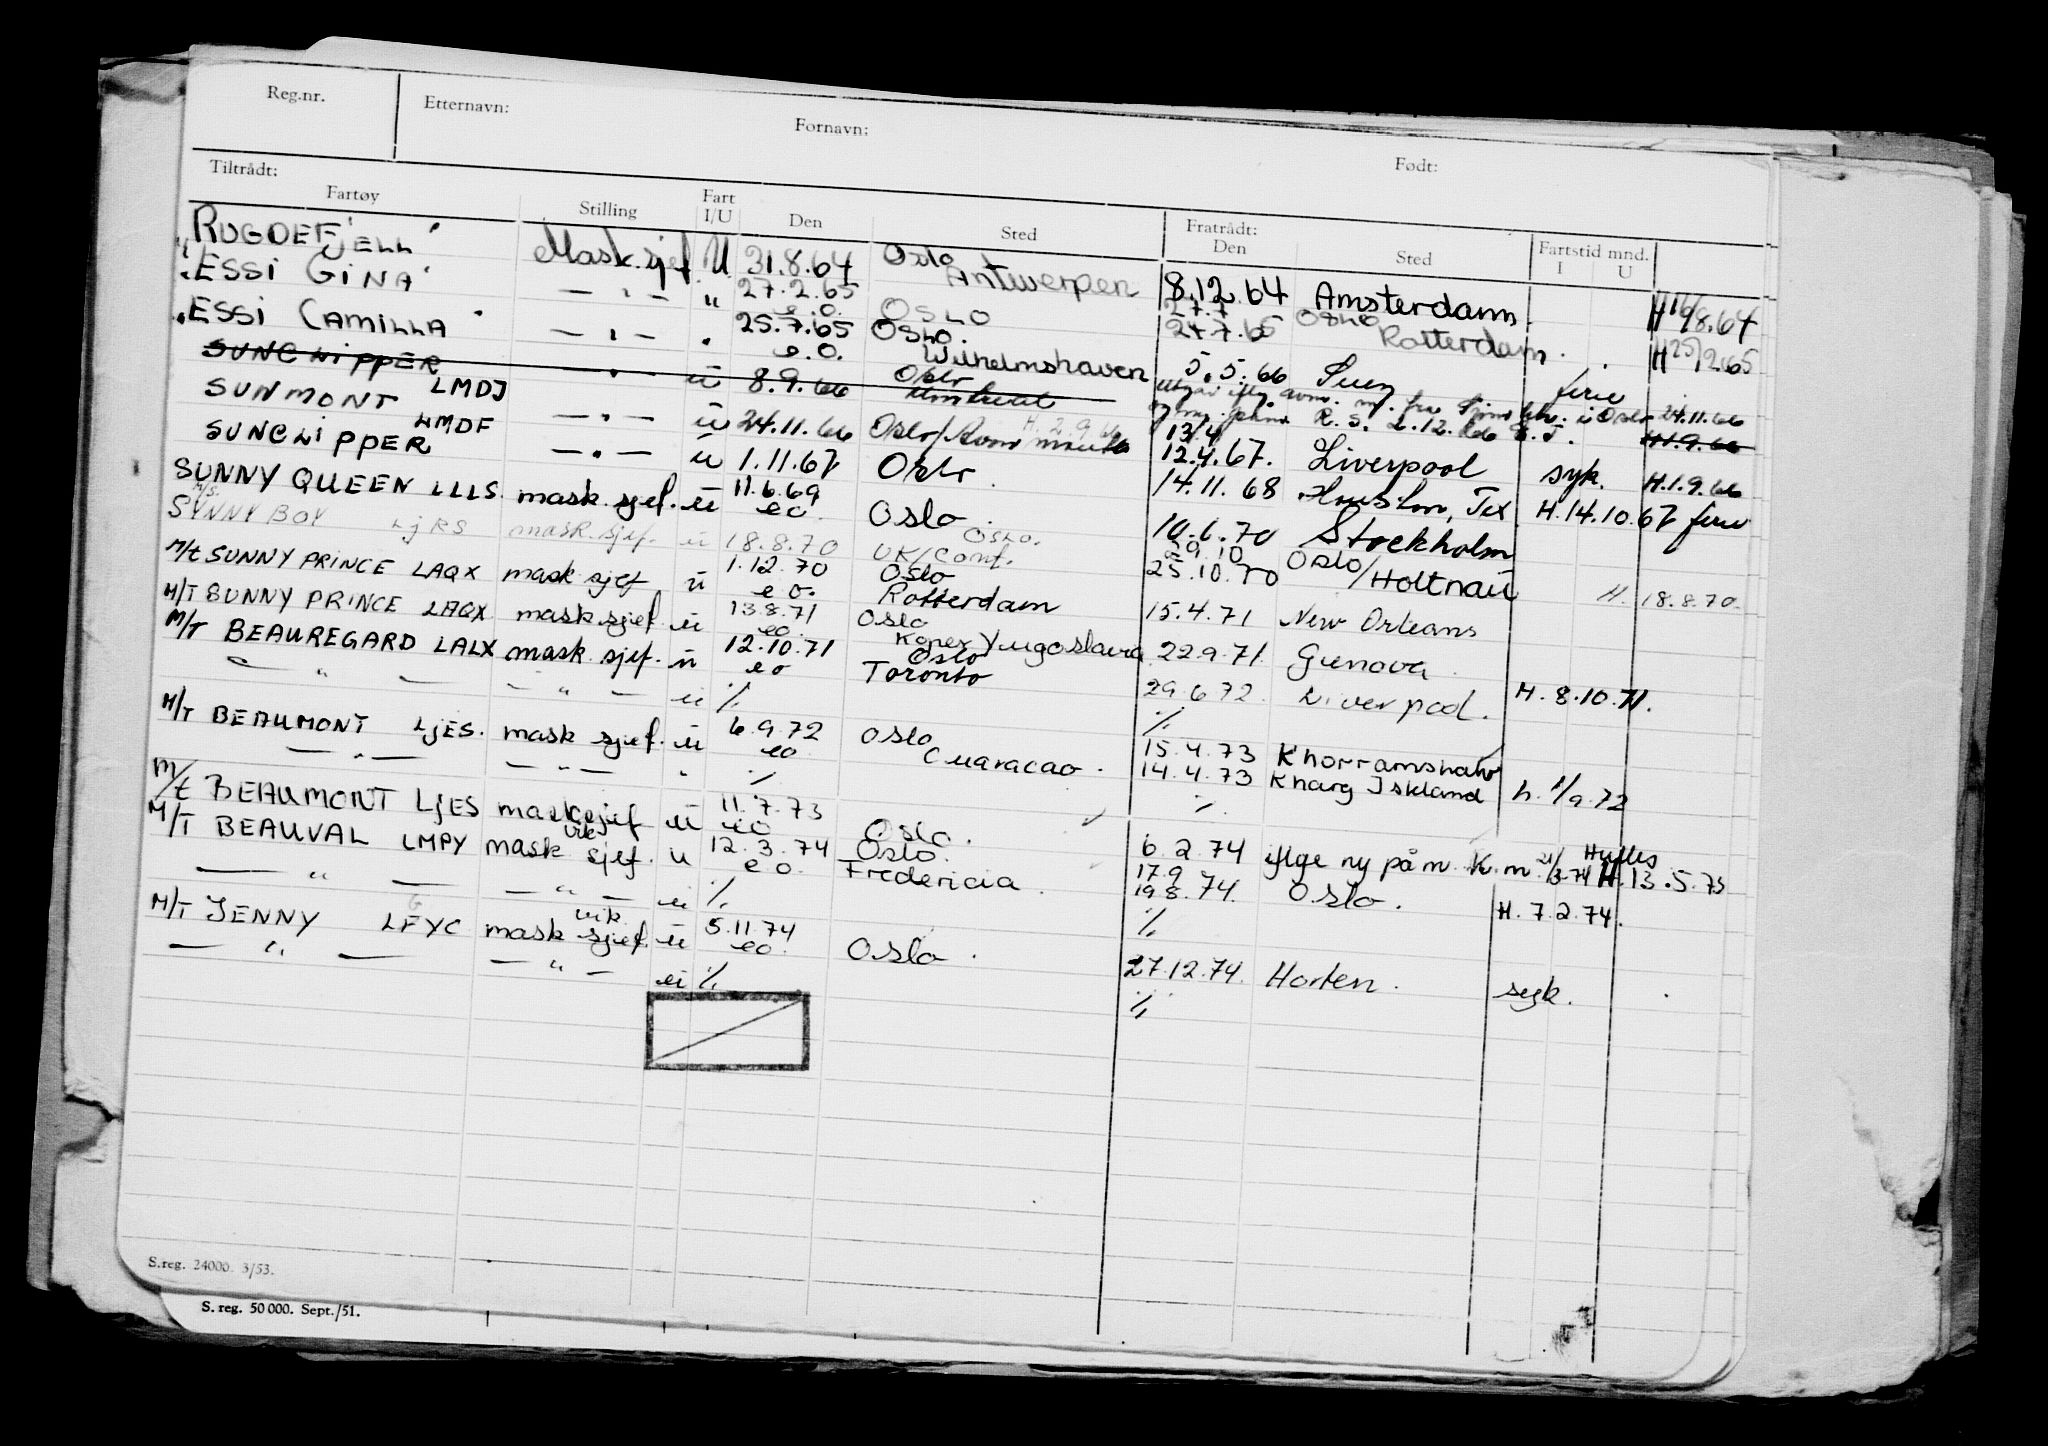 Reg.nr. Etternavn: Fornavn: Født:
Tiltrådt: Fratrådt:
Fartøy Stilling Fart I/U Den Sted Den Sted Fartstid mnd. I U
"RUGDEFJELL" Mask.sjef U 31.8.64 Oslo Antwerpen 8.12.64 Amsterdam. H 16/8.64
"ESSI GINA" — " — " 27.2.65 e.o. OSLO 27.7 24.7.65 OSLO Rotterdam. H 25/2.65
"ESSI CAMILLA" — " — " 25.7.65 e.o. OSLO. Wilhelmshaven 5.5.66 Suez ferie
SUNCLIPPER — " — u 8.9.66 Oslo H.1.9.66
SUNMONT LMDJ — " — u 24.11.66 Oslo/ 13/4 12.4.67. Liverpool syk. H.1.9.66
SUNCLIPPER LMDF — " — u 1.11.67 Oslo 14.11.68 Houston, Tex H.14.10.67 ferie
SUNNY QUEEN LLLS. mask.sjef. u 11.6.69 eo Oslo. 10.6.70 Stockholm
M/S. SYNNY BOY LJRS mask.sjef. u 18.8.70 OSLO. UK/Cont. 29.10 25.10.70 Oslo/Holtnau H. 18.8.70.
M/t SUNNY PRINCE LAQX mask sjef u 1.12.70 e o. Oslo Rotterdam 15.4.71 New Orleans
M/T SUNNY PRINCE LAQX. mask.sjef. u 13.8.71 eo. Oslo Koper Yugoslavia 22.9.71. Genova.
M/T BEAUREGARD LALX mask.sjef. u 12.10.71 eo Oslo Toronto 29.6.72. Liverpool. H. 8.10.71.
— " — — " — u % %
M/T BEAUMONT LJES. mask sjef. u 6.9.72 eo Oslo Cuaracao. 15.4.73 14.4.73 Khorramshahr Kharg Iskland h. 1/9.72
— " — — " — " % %
M/t BEAUMONT LJES mask.sjef u 11.7.73 eo Oslo. 6.2.74 iflge ny påm. K.m. 21/3.74 H.13.5.73
M/T BEAUVAL LMPY mask vik sjef. u 12.3.74 e o. Oslo. Fredericia. 17.9 19.8.74. Oslo. H. 7.2.74.
— " — — " — u % %
M/T JENNY LFYC mask vik. sjef. u 5.11.74 eo. Oslo. 27.12.74. Horten. syk.
— " — — " — u % %
S.reg. 24000. 3/53.
S. reg. 50 000. Sept./51.